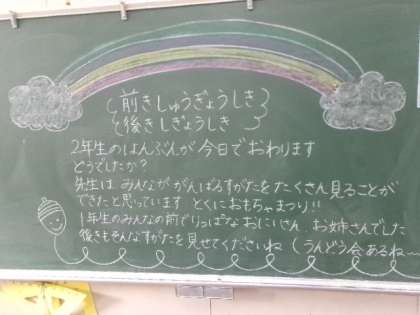 前きしゅうぎょうしき
後きしぎょうしき
2年生のはんぶんが今日でおわります
どうでしたか?
先生は みんなが がんばるすがたを たくさん見ることが
できたと思っています とくにおもちゃまつり!!
1年生のみんなの前でりっぱな おにいさん お姉さんでした
後きもそんなすがたを見せてくださいね (うんどう会あるね〜